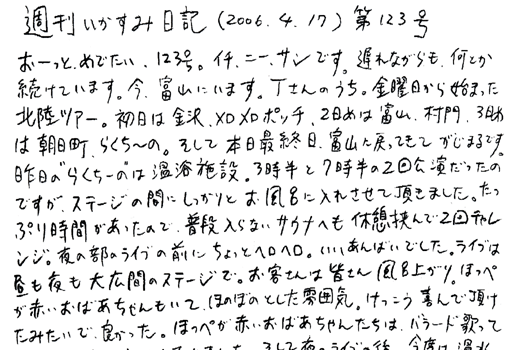 週刊いかすみ日記 (2006.4.17) 第123号
おーっと、めでたい、123号。イチ、ニー、サンです。遅れながらも、何とか
続けています。今、富山にいます。Tさんのうち。金曜日から始まった
北陸ツアー。初日は金沢、メロメロポッチ、2日めは富山、村門、3日め
は朝日町、らくち〜の。そして本日最終日、富山に戻ってきて がじまるです。
昨日の"らくち〜の"は温浴施設。3時半と7時半の2回公演だったの
ですが、ステージの間にしっかりとお風呂に入れさせて頂きました。たっ
ぷり時間があったので、普段入らないサウナへも休憩挟んで2回チャレ
ンジ。夜の部のライブの前にちょっとヘロヘロ。いいあんばいでした。ライブは
昼も夜も大広間のステージで。お客さんは皆さん風呂上がり。ほっぺ
が赤いおばあちゃんもいて、ほのぼのとした雰囲気。けっこう喜んで頂け
たみたいで、良かった。ほっぺが赤いおばあちゃんたちは、バラード歌って